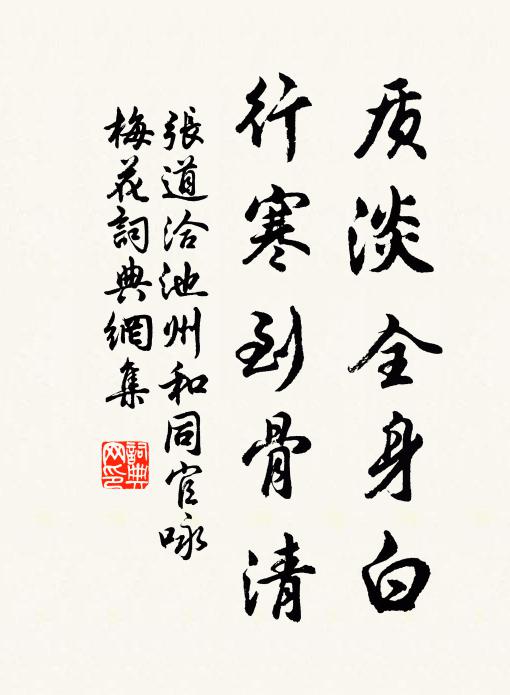 质淡全身白
行寒到骨清
張道洽池州和同官咏
梅花詞典網集
詞典网印